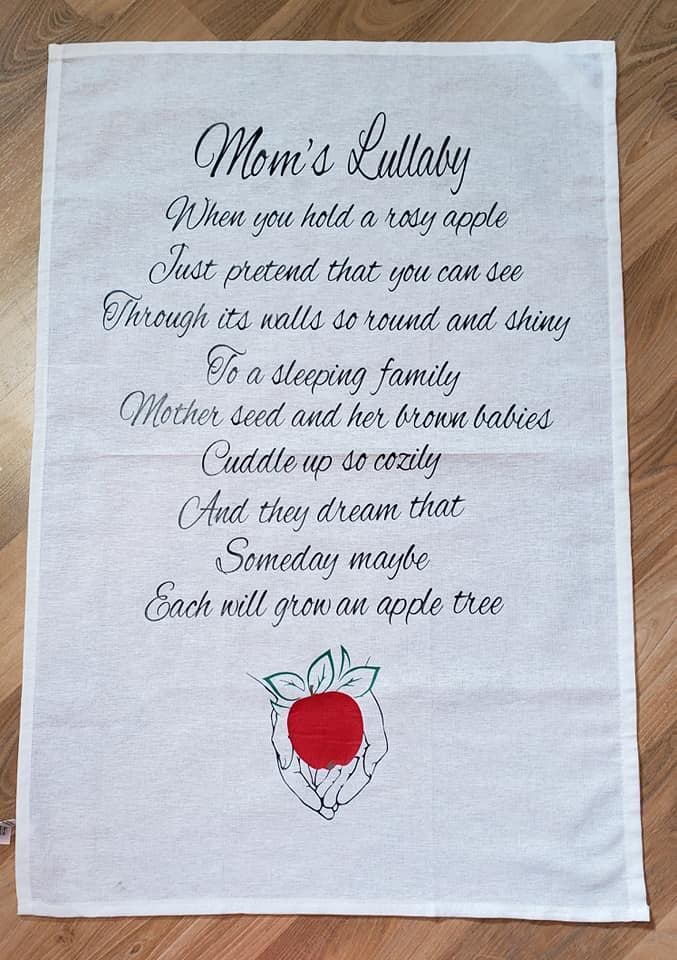 Mom's Lullaby
When you hold a rosy apple
Just pretend that you can see
Through its walls so round and shiny
To a sleeping family
Mother seed and her brown babies
Cuddle up so cozily
And they dream that
Someday maybe
Each will grow an apple tree